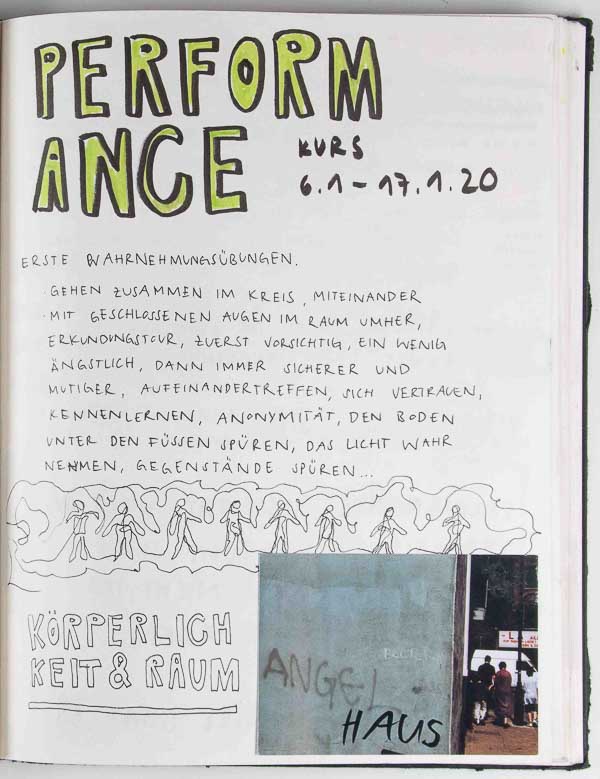 PERFORM
ANCE
KURS
6.1 – 17.1.20
ERSTE WAHRNEHMUNGSÜBUNGEN.
· GEHEN ZUSAMMEN IM KREIS, MITEINANDER
· MIT GESCHLOSSENEN AUGEN IM RAUM UMHER,
ERKUNDUNGSTOUR, ZUERST VORSICHTIG, EIN WENIG
ÄNGSTLICH, DANN IMMER SICHERER UND
MUTIGER, AUFEINANDERTREFFEN, SICH VERTRAUEN,
KENNENLERNEN, ANONYMITÄT, DEN BODEN
UNTER DEN FÜSSEN SPÜREN, DAS LICHT WAHR
NEHMEN, GEGENSTÄNDE SPÜREN...
KÖRPERLICH
KEIT & RAUM
ANGEL
HAUS